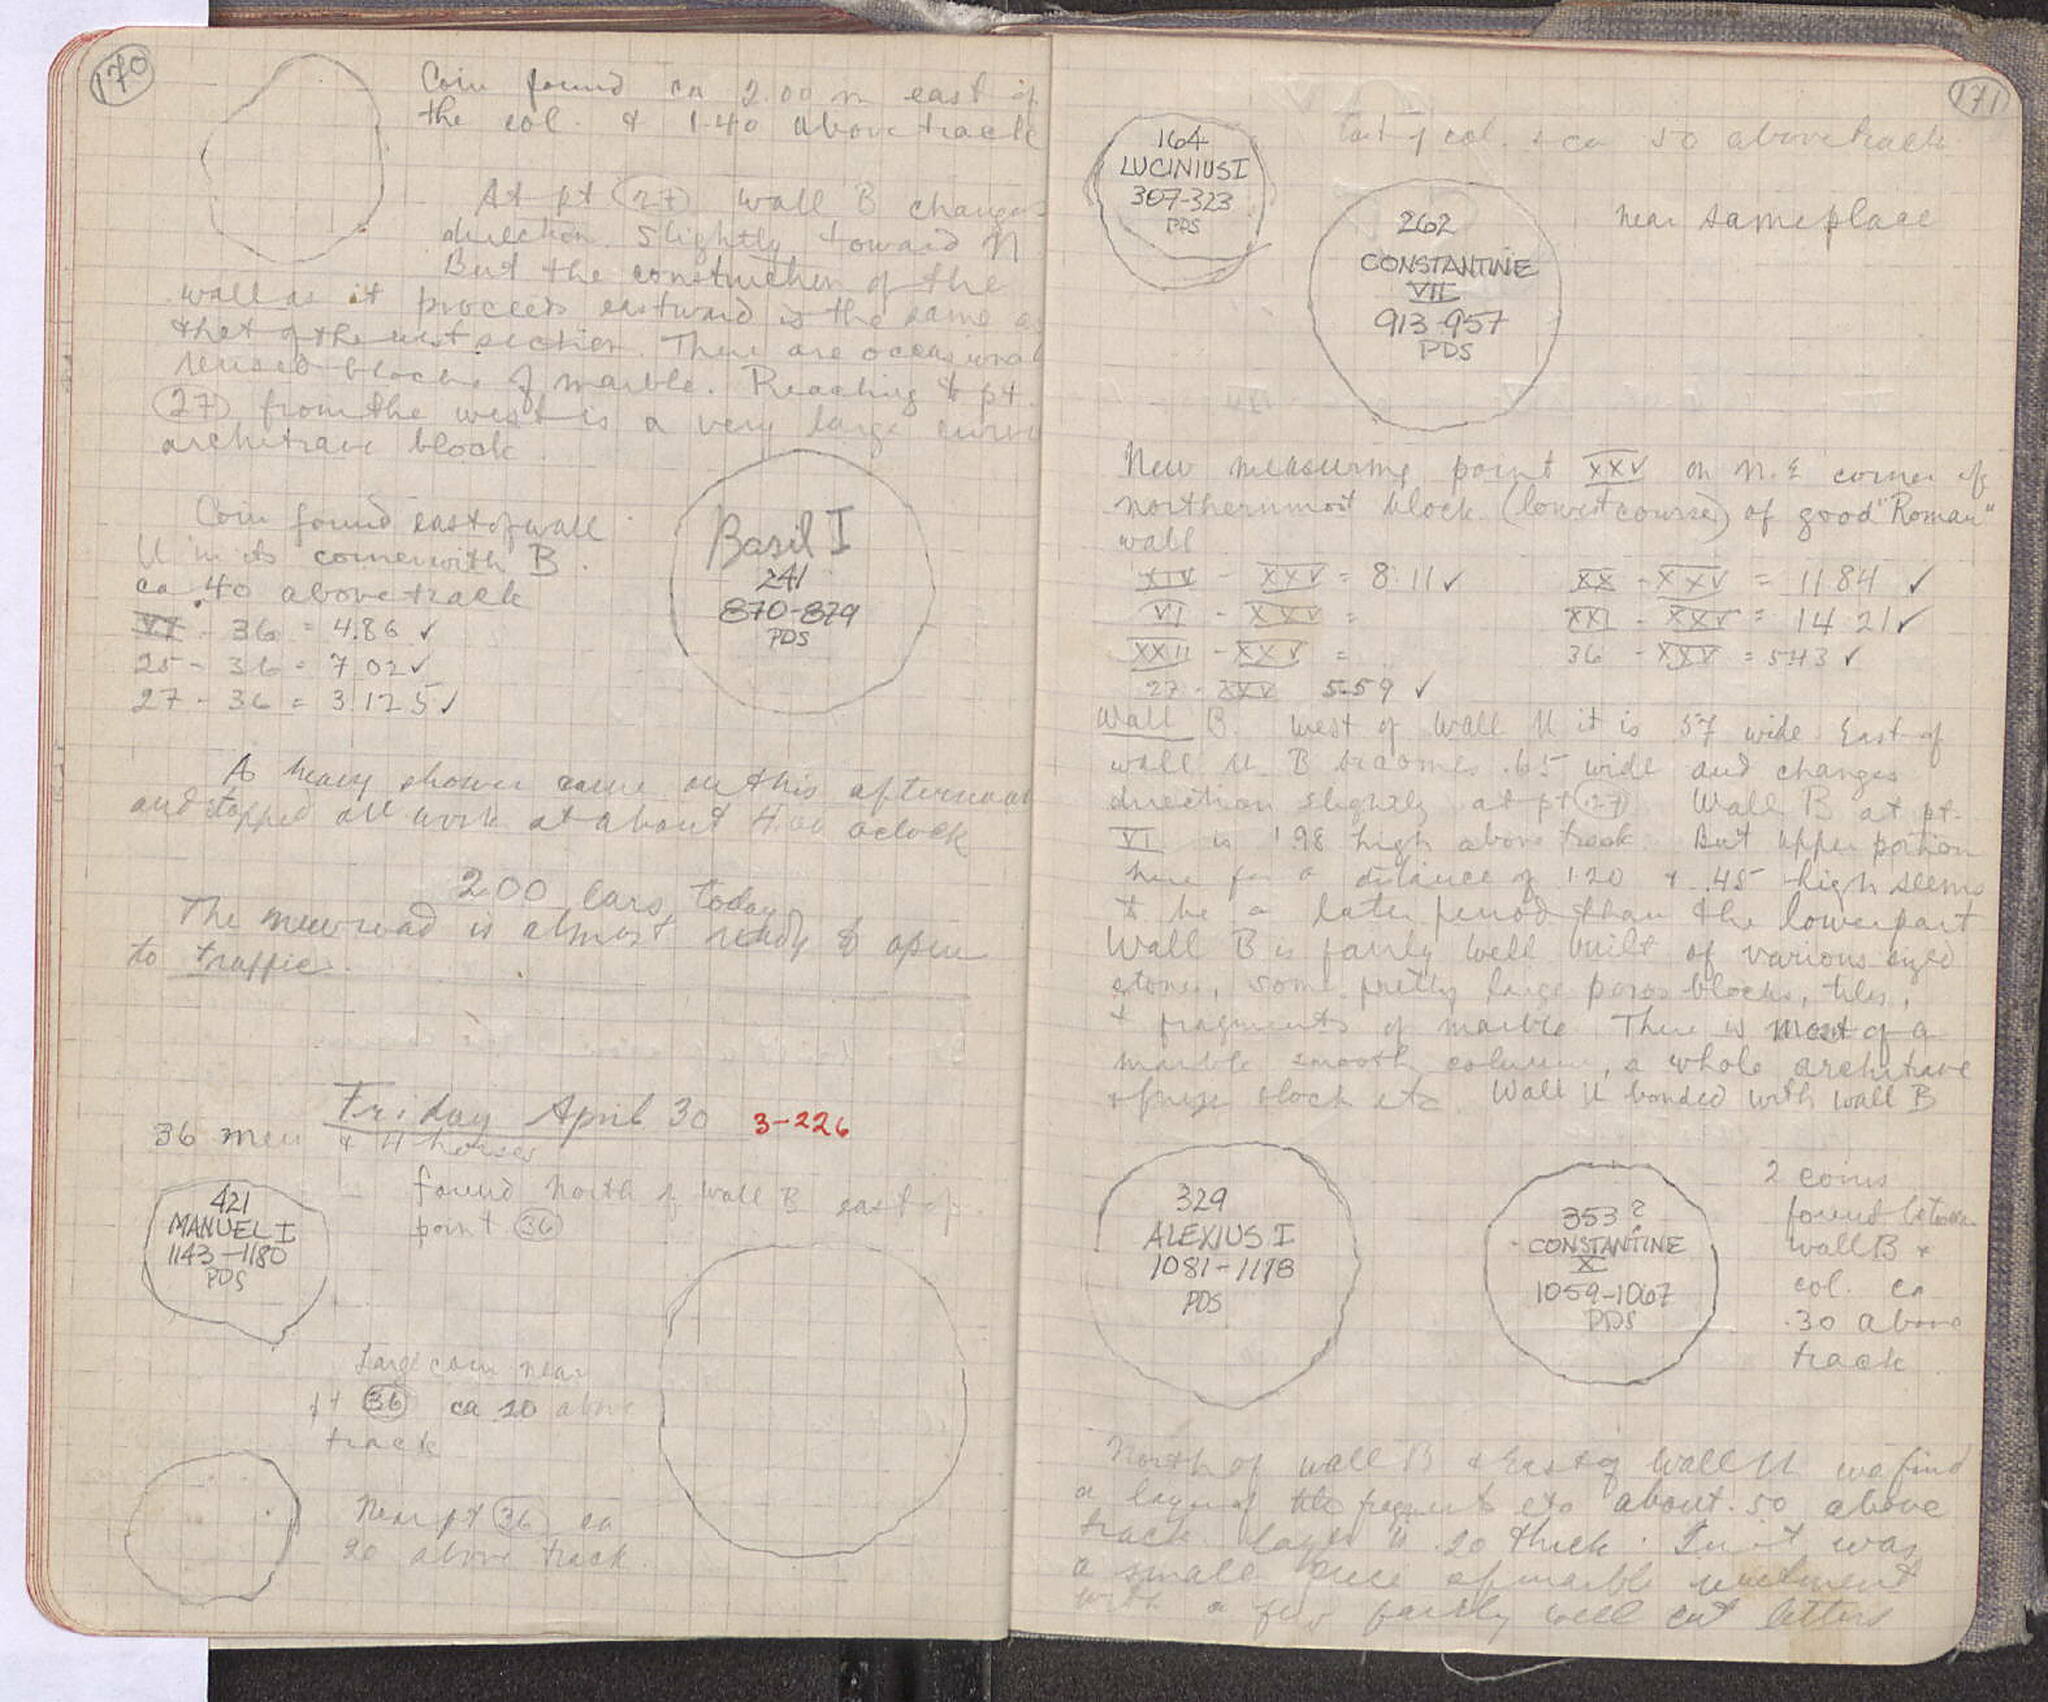 170
Coin found ca 2.00 m east of
the col. & 1.40 above track
At pt 27 wall B changes
direction slightly toward N
But the construction of the
wall as it proceeds eastward is the same as
that of the west section. There are occasional
reused blocks of marble. Reaching to pt.
27 from the west is a very large
architrave block.
Coin found east of wall
U in its corner with B.
ca .40 above track
VI - 36 = 4.86 ✓
25 - 36 = 7.02 ✓
27 - 36 = 3.125 ✓
Basil I
241
870-879
PDS
A heavy shower came on this afternoon
and stopped all work at about 4.00 oclock
200 cars today
The new road is almost ready to open
to traffic.
Friday April 30 3-226
36 men & 4 horses
421
MANUEL I
1143-1180
PDS
found north of wall B east of
point 36
Large coin near
pt 36 ca 20 above
track
Near pt 36 ca
20 above track.
171
164
LUCINIUS I
307-323
PDS
East of col. & ca 50 above track
262
CONSTANTINE
VII
913-957
PDS
near same place
New measuring point XXV on N.E corner of
northernmost block (lowest course) of good "Roman"
wall
XIV - XXV = 8.11 ✓ XX - XXV = 11.84 ✓
VI - XXV = XXI - XXV = 14.21 ✓
XXII - XXV = 36 - XXV = 5.43 ✓
27 - XXV 5.59 ✓
Wall B. West of Wall U it is .57 wide East of
wall U. B becomes .65 wide and changes
direction slightly at pt 27. Wall B at pt.
VI is 1.98 high above track. But upper portion
here for a distance of 1.20 & .45 high seems
to be a later period than the lower part
Wall B is fairly well built of various sized
stones, some pretty large poros blocks, tiles,
& fragments of marble There is most of a
marble smooth column, a whole architrave
& frieze block etc Wall U bonded with wall B
329
ALEXIUS I
1081-1118
PDS
353?
CONSTANTINE
X
1059-1067
PDS
2 coins
found between
wall B &
col. ca
.30 above
track
North of wall B & East of Wall U we find
a layer of tile fragments etc about .50 above
track layer is .20 thick. In it was
a small piece of marble revetment
with a few fairly well cut letters